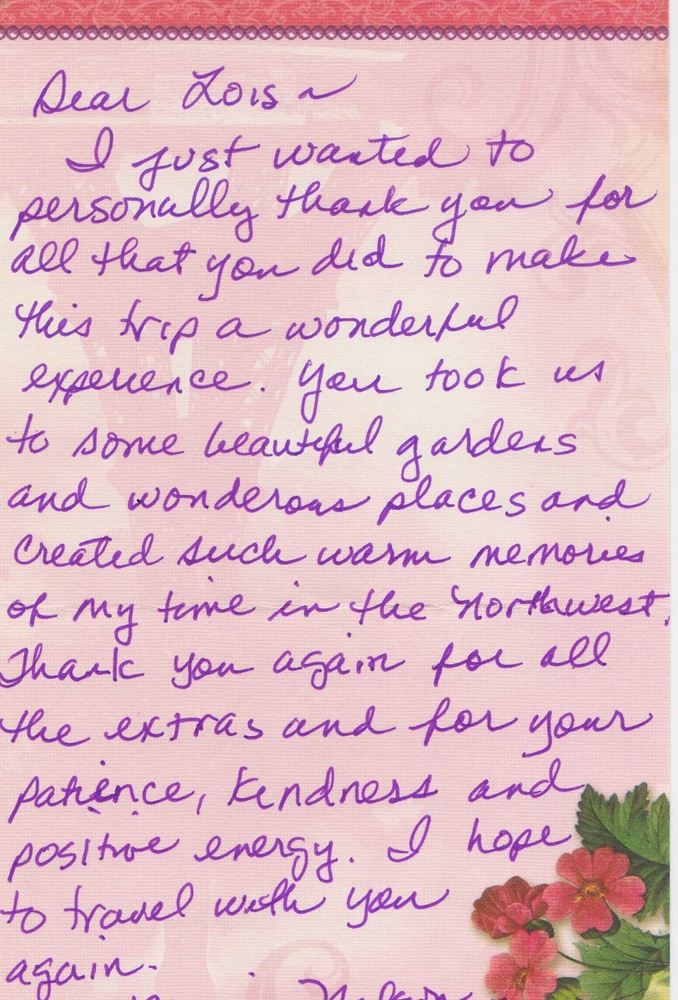 Dear Lois ~
I just wanted to
personally thank you for
all that you did to make
this trip a wonderful
experience. You took us
to some beautiful gardens
and wonderous places and
created such warm memories
of my time in the Northwest.
Thank you again for all
the extras and for your
patience, kindness and
positive energy. I hope
to travel with you
again.